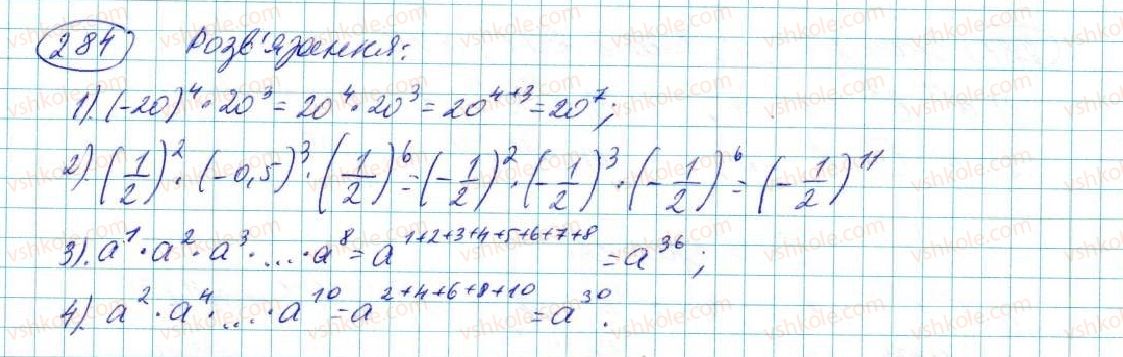 284 Розв'язання:
1). (-20)^4 · 20^3 = 20^4 · 20^3 = 20^{4+3} = 20^7;
2). (1/2)^2 · (-0,5)^3 · (1/2)^6 = (-1/2)^2 · (-1/2)^3 · (-1/2)^6 = (-1/2)^{11}
3). a^1 · a^2 · a^3 · ... · a^8 = a^{1+2+3+4+5+6+7+8} = a^{36};
4). a^2 · a^4 · ... · a^{10} = a^{2+4+6+8+10} = a^{30}.